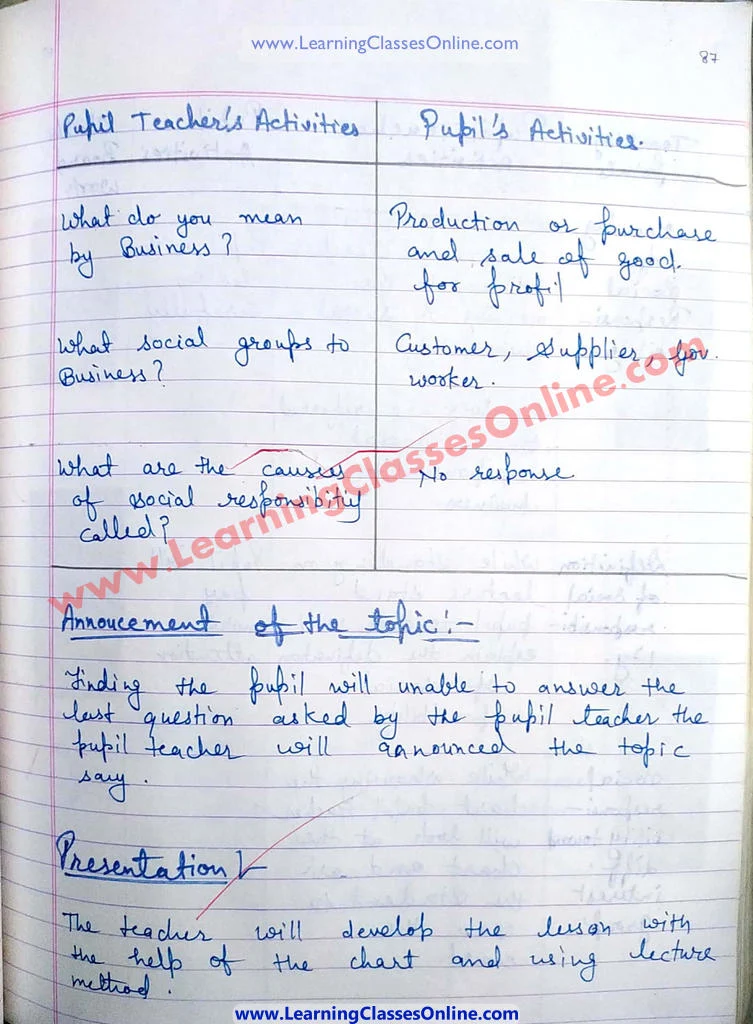 www.LearningClassesOnline.com
87
Pupil Teacher's Activities
Pupil's Activities.
What do you mean
by Business?
Production or purchase
and sale of good.
for profit
What social groups to
Business?
Customer, Supplier, Gov.
worker.
What are the causes
of social responsibitiy
called?
No response
www.LearningClassesOnline.com
Annoucement of the topic:-
Finding the pupil will unable to answer the
last question asked by the pupil teacher the
pupil teacher will announced the topic
say.
Presentation:-
The teacher will develop the lesson with
the help of the chart and using lecture
method.
www.LearningClassesOnline.com